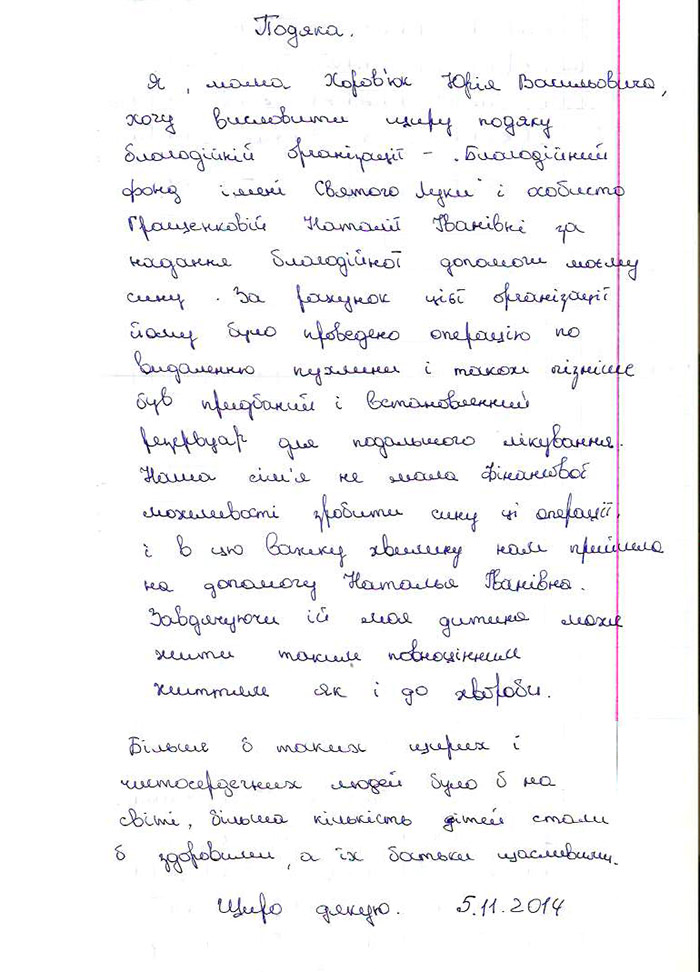 Подяка.
Я, мама Хоров'юк Юрія Васильовича,
хочу висловити щиру подяку
благодійній організації – "Благодійний
фонд імені Святого Луки" і особисто
Гращенковій Наталії Іванівні за
надання благодійної допомоги моєму
сину. За рахунок цієї організації
йому було проведено операцію по
видаленню пухлини і також пізніше
був придбаний і встановленний
резервуар для подальшого лікування.
Наша сім'я не мала фінансової
можливості зробити сину ці операції,
і в цю важку хвилину нам прийшла
на допомогу Наталья Іванівна.
Завдячуючи їй моя дитина може
жити таким повноцінним
життям як і до хвороби.
Більше б таких щирих і
чистосердечних людей було б на
світі, більша кількість дітей стали
б здоровими, а їх батьки щасливими.
Щиро дякую. 5.11.2014